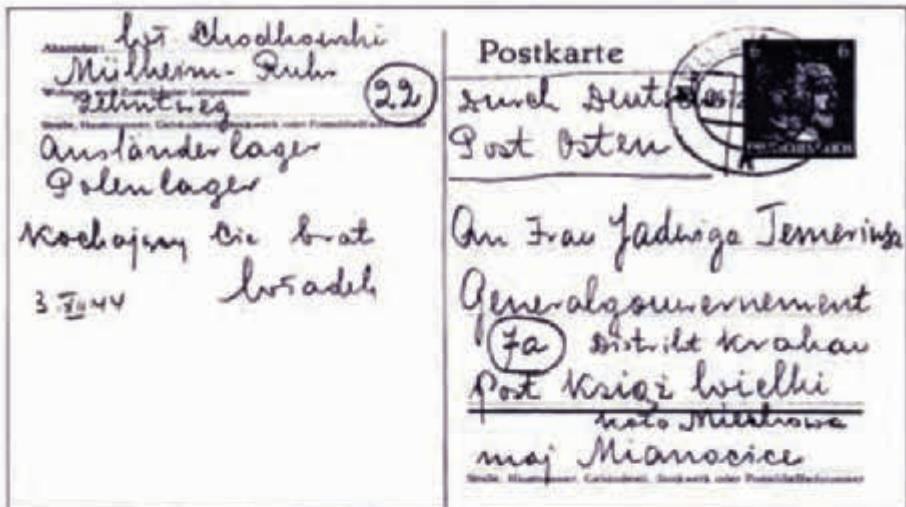 Absender: Wł Chodkowski
Mülheim-Ruhr
22
Zehntweg
Straße, Hausnummer, Gebäudeteil, Stockwerk oder Postschließfachnummer
Ausländerlager
Polenlager
Kochający Cie brat
Władek
3.XII 44
Postkarte
Durch Deutsche
Post Osten
6 6
An Frau Jadwiga
Generalgouvernement
7a Distrikt Krakau
Post Książ Wielki
koło Miechowa
maj Mianocice
Straße, Hausnummer, Gebäudeteil, Stockwerk oder Postschließfachnummer